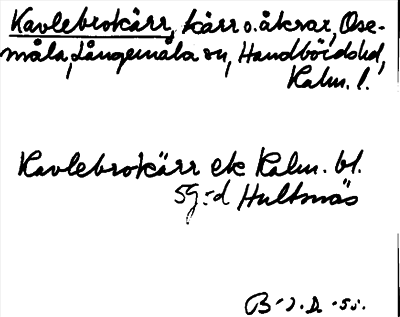 Kavlebrokärr, kärr o. åkrar, Ose-
måla, Långemåla sn, Handbörds hd,
Kalm. l.
Kavlebrokärr ek Kalm. bl.
59:d Hultsnäs